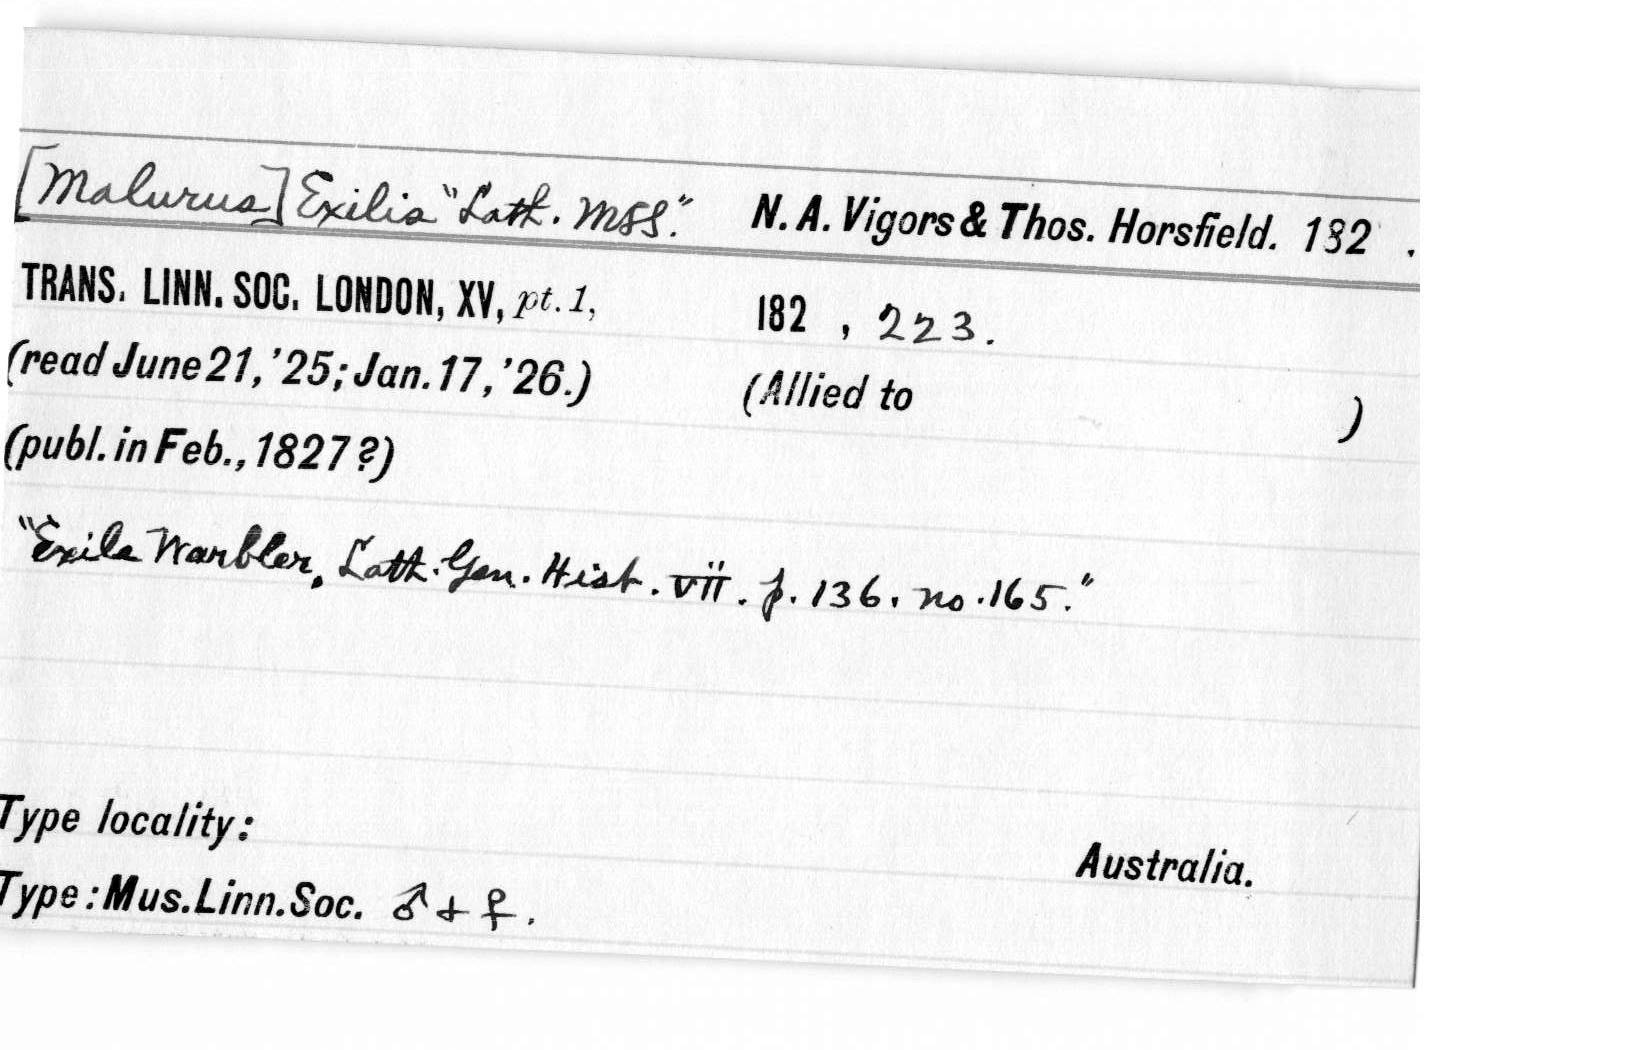 [Malurus] Exilis "Lath. MSS." N. A. Vigors & Thos. Horsfield. 182 .
TRANS. LINN. SOC. LONDON, XV, pt. 1, 182 , 223.
(read June 21, '25; Jan. 17, '26.) (Allied to )
(publ. in Feb., 1827 ?)
"Exile Warbler, Lath. Gen. Hist. vii. p. 136. no. 165."
Type locality: Australia.
Type: Mus. Linn. Soc. ♂ + ♀.